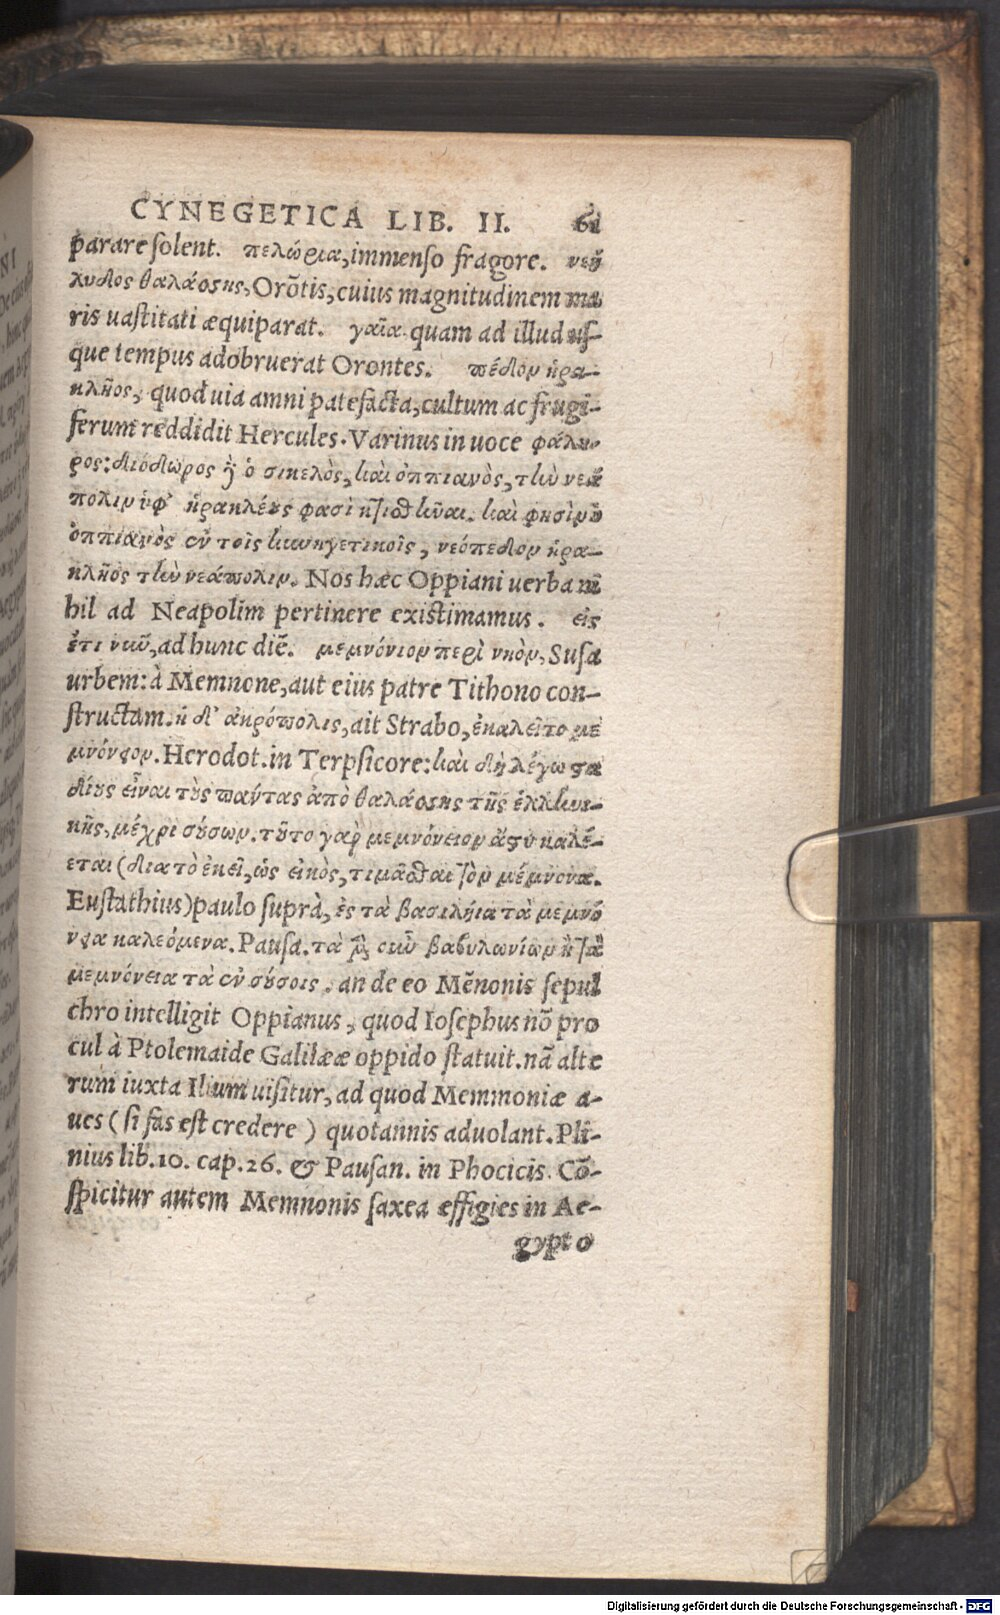 CYNEGETICA LIB. II. 61
parare solent. πελώρια, immenso fragore. νεή
λυδος θαλάσσης, Orōtis, cuius magnitudinem ma
ris uastitati æquiparat. γαῖα quam ad illud us-
que tempus adobruerat Orontes. πέδον ἡρα-
κλῆος, quod uia amni patefacta, cultum ac frugi-
ferum reddidit Hercules. Varinus in uoce φάλη-
ρος: διόδωρος ὁ σικελὸς, καὶ ὀππιανὸς, τὴν νεά
πολιν ὑφ' ἡρακλέους φασὶ κτισθῆναι. καὶ φησὶν ὁ
ὀππιανὸς ἐν τοῖς κυνηγετικοῖς, νεόπεδον ἡρα-
κλῆος τὴν νεάπολιν. Nos hæc Oppiani uerba ni
hil ad Neapolim pertinere existimamus. εἰς
ἔτι νῦν, ad hunc diē. μεμνόνιον περὶ νηὸν, Susa
urbem: à Memnone, aut eius patre Tithono con-
structam. ἡ δ' ἀκρόπολις, ait Strabo, ἐκαλεῖτο με
μνόνειον. Herodot. in Terpsicore: καὶ δὴ λέγω στα
δίους εἶναι τοὺς πάντας ἀπὸ θαλάσσης τῆς ἑλληνι-
κῆς, μέχρι σούσων. τοῦτο γὰρ μεμνόνειον ἄστυ καλέ-
εται (δια τὸ ἐκεῖ, ὡς εἰκὸς, τιμᾶσθαι τὸν μέμνονα.
Eustathius) paulo suprà, ἐς τὰ βασιλήια τὰ μεμνό
νεια καλεόμενα. Pausa. τὰ μὲν σὺν βαβυλωνίων ἢ τὰ
μεμνόνεια τὰ ἐν σούσοις. an de eo Mēnonis sepul
chro intelligit Oppianus, quod Iosephus nō pro
cul à Ptolemaide Galilææ oppido statuit. nā alte
rum iuxta Ilium uisitur, ad quod Memnoniæ a-
ues (si fas est credere) quotannis aduolant. Pli-
nius lib. 10. cap. 26. & Pausan. in Phocicis. Cō-
spicitur autem Memnonis saxea effigies in Ae-
gypto
Digitalisierung gefördert durch die Deutsche Forschungsgemeinschaft - DFG